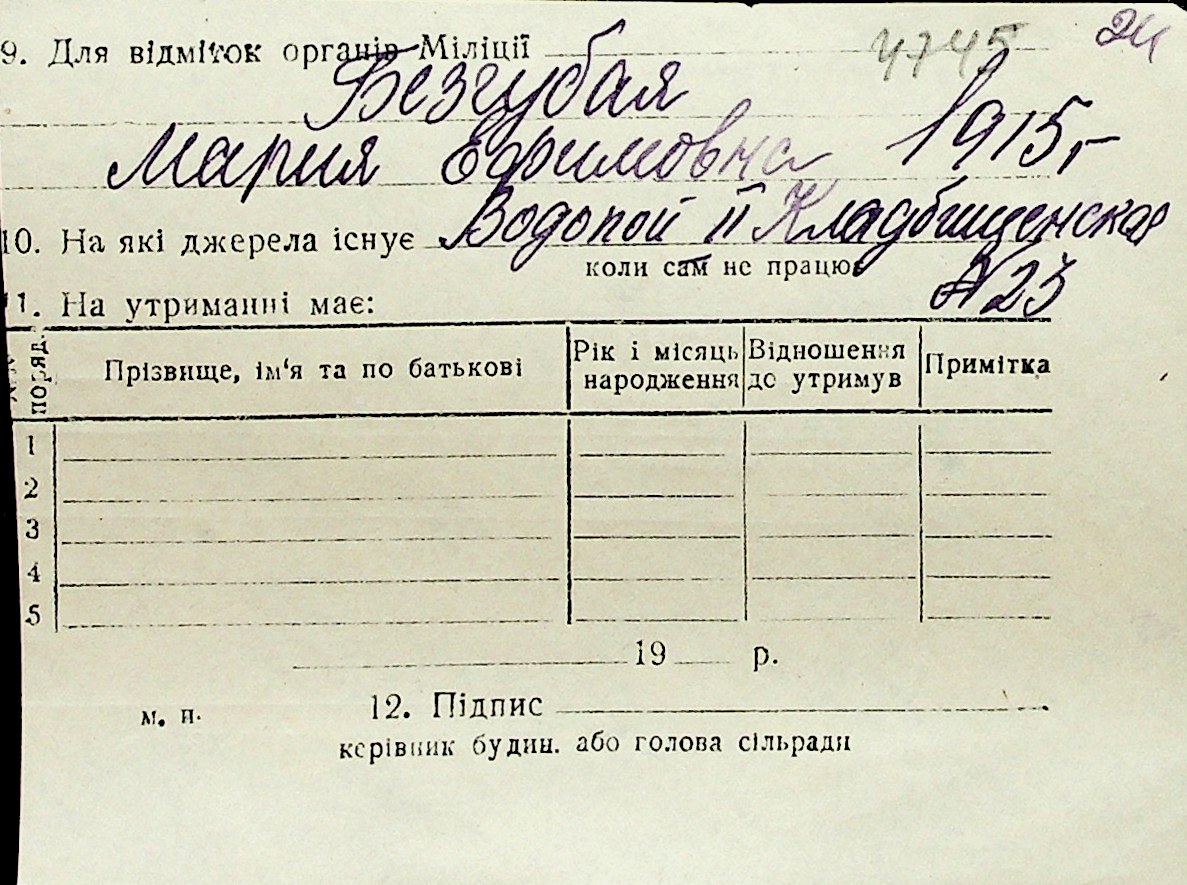 4745 24
9. Для відміток органів Міліції
Безгубая
Мария Ефимовна 1915 г
10. На які джерела існує Водопой II Кладбищенская
коли сам не працює
№23
11. На утриманні має:
поряд. Прізвище, ім‘я та по батькові Рік і місяць народження Відношення до утримув Примітка
1
2
3
4
5
19 р.
м. п. 12. Підпис
керівник будин. або голова сільради